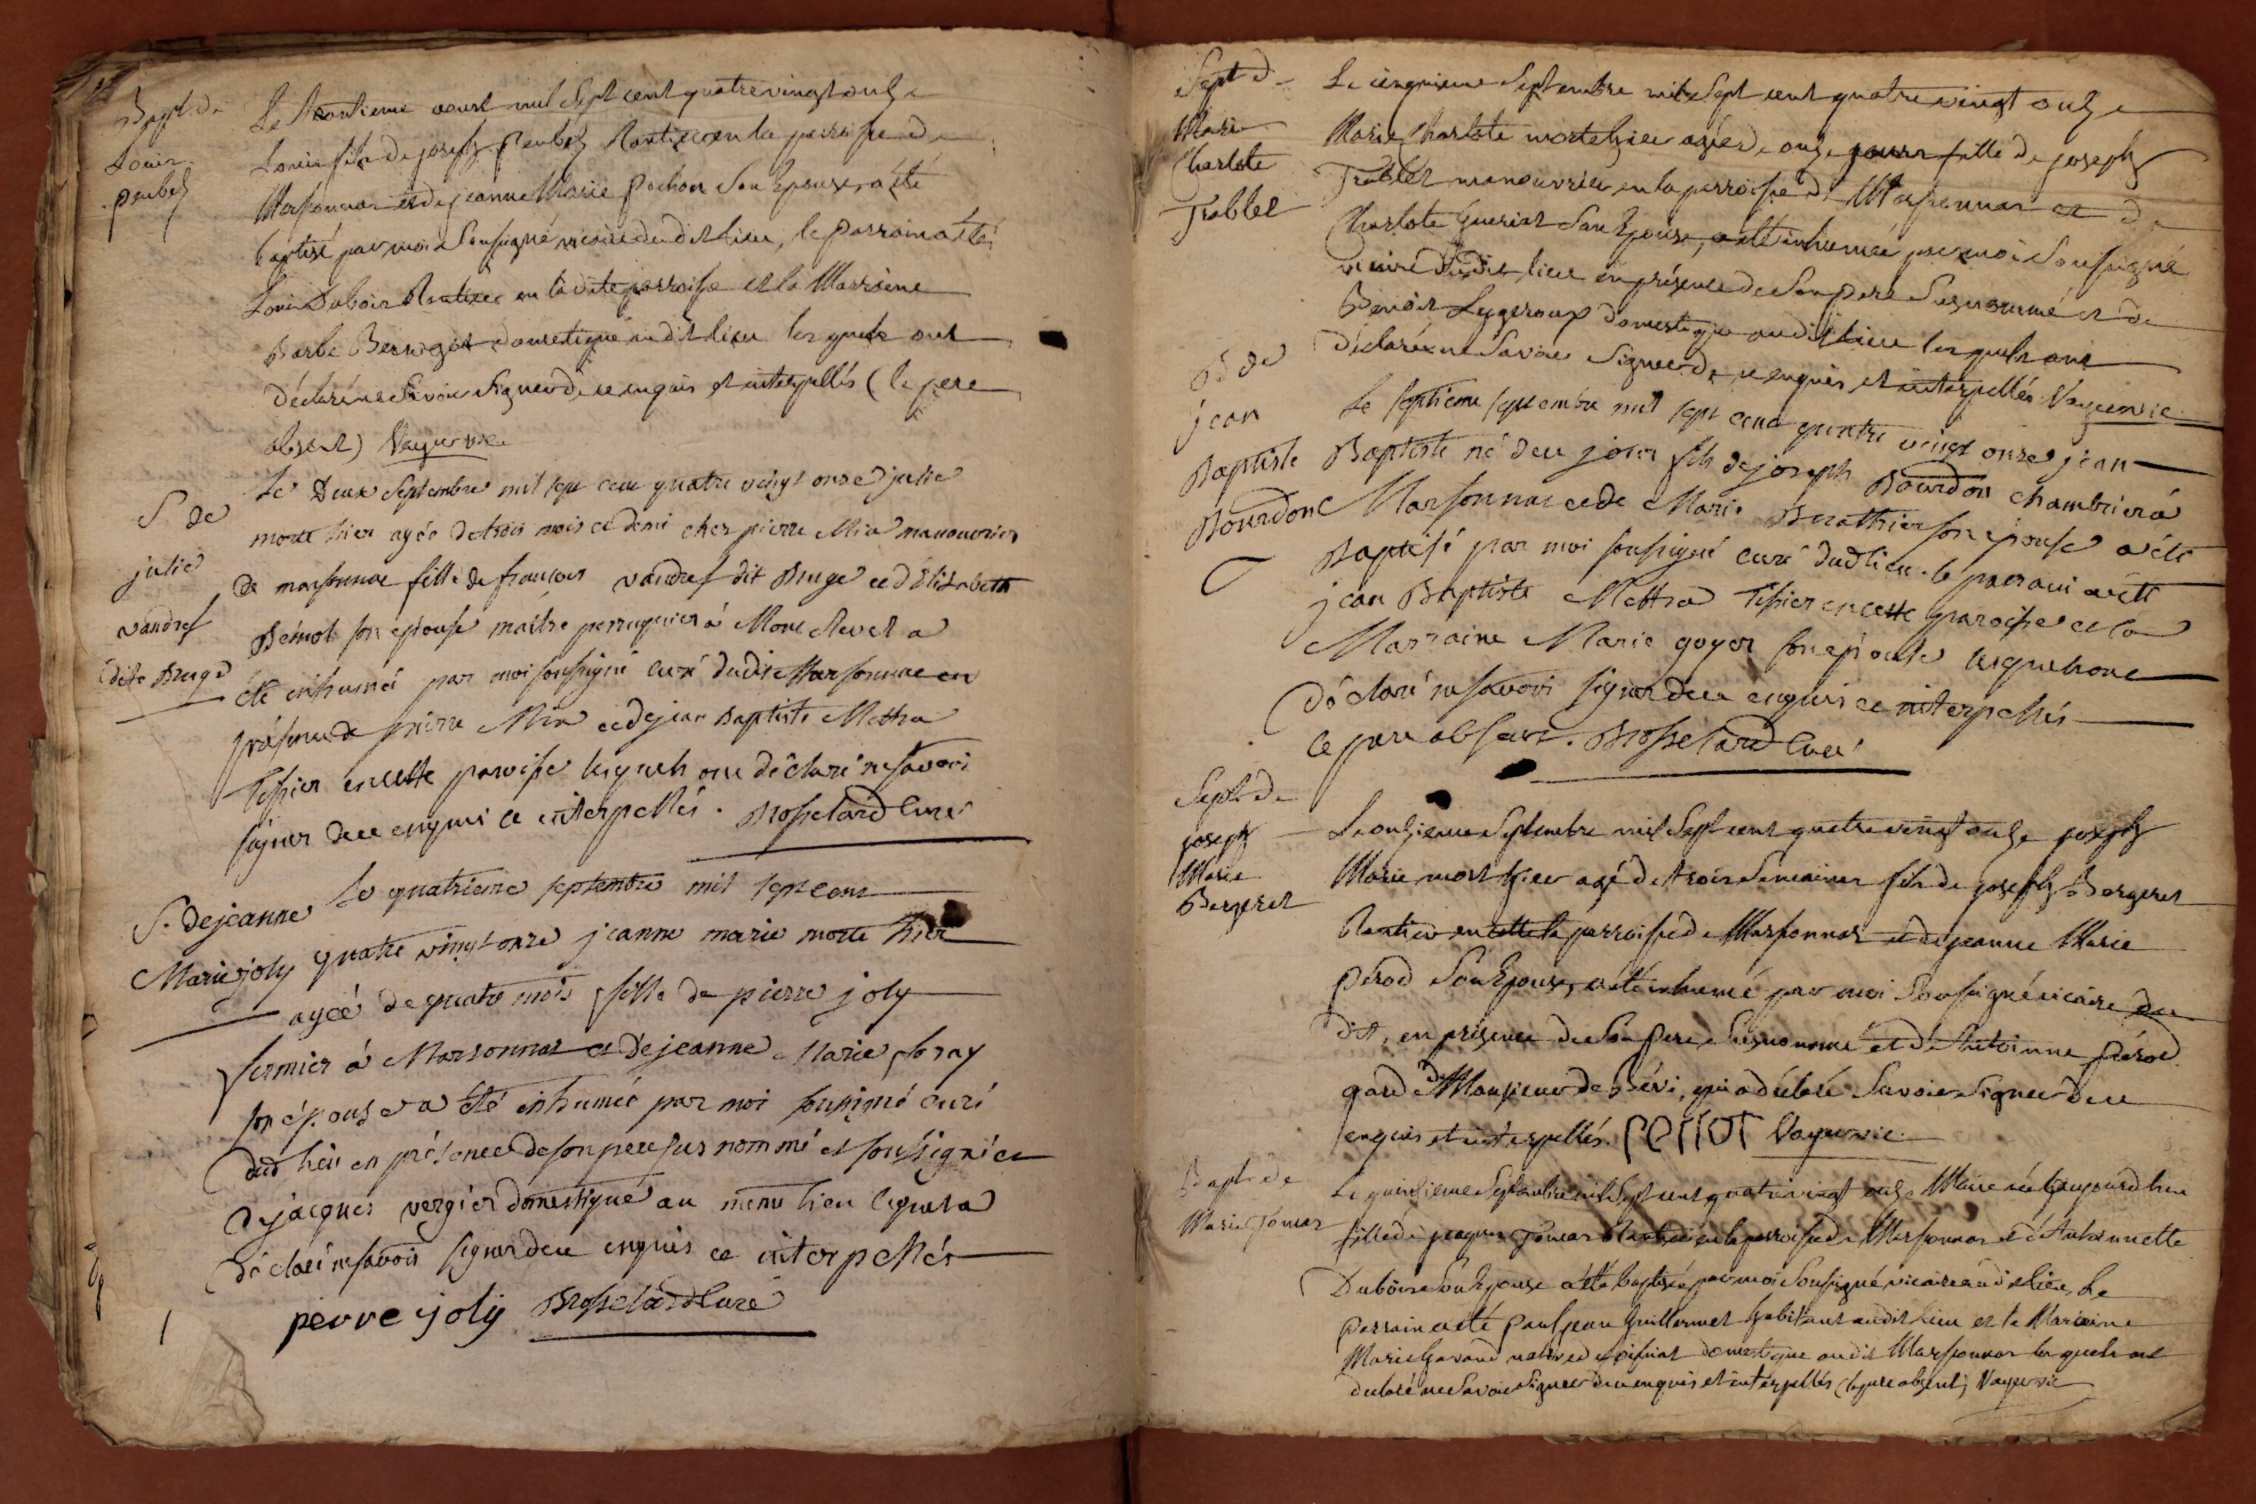 Bapt. de
Louis
peubel
Le trentieme aoust mil Sept cent quatrevingt onze
Louis fils de joseph peubel Rentier en la parroisse de
Marsonnas et de jeanne Marie pochon Son Epouse, a été
baptisé par moi Soussigné vicaire du dit lieu, le parrain a été
Louis Dubois Rentier en la dite parroisse et la Marraine
Barbe domestique au dit lieu les quels ont
déclaré ne Savoir Signer de ce enquis et interpellés (le pere
absent) Vayer vic.
S. de
julie
vandref
dite Bruge
Le Deux Septembre mil sept cent quatre vingt onze julie
morte hier agée de trois mois et demi chez pierre Mia manouvrier
de marsonnas fille de françois vandref dit Bruge et d'Elisabeth
Bemol son epouse maitre perruquier à Mont Revel a
été inhumée par moi soussigné curé dudit Marsonnas en
présence de pierre Mia et de jean Baptiste Mettra
Tissier en cette paroisse lesquels ont déclaré ne savoir
signer de ce enquis et interpellés. Brosselard Curé
S. de jeanne
Marie joly
Le quatrieme septembre mil sept cent
quatre vingt onze jeanne marie morte hier
agée de quatre mois fille de pierre joly
fermier à Marsonnas et de jeanne Marie foray
son épouse a été inhumée par moi soussigné curé
dud lieu en présence de son pere susnommé et soussigné et
de jacques vergier domestique au meme lieu lequel a
déclaré ne savoir signer de ce enquis et interpellés
pierre joly Brosselard Curé
Sept. de
Marie
Charlote
Trablet
Le cinquieme Septembre mil Sept cent quatre vingt onze
Marie Charlote morte hier agée de onze jours fille de joseph
Trablet manouvrier en la parroisse de Marsonnas et de
Charlote Gueriat Son Epouse, a été inhumée par moi Soussigné
vicaire du dit lieu en présence de Son pere Susnommé et de
Benoit Lugeroux domestique au dit lieu les quels ont
déclaré ne Savoir Signer de ce enquis et interpellés Vayer vic.
B. de
jean
Baptiste
Bourdon
Le septieme septembre mil sept cent quatre vingt onze jean
Baptiste né de ce jour fils de joseph Bourdon chambrier à
Marsonnas et de Marie Berathier son épouse a été
Baptisé par moi soussigné curé dud lieu. le parrain a été
jean Baptiste Mettra Tissier en cette paroisse et la
Marraine Marie goyon son épouse lesquels ont
déclaré ne savoir signer de ce enquis et interpellés
le pere absent. Brosselard Curé
Sept. de
joseph
Marie
Bergeret
Le onzieme Septembre mil Sept cent quatre vingt onze joseph
Marie mort hier agé de trois Semaines fils de joseph Bergeret
Rentier en cette la parroisse de Marsonnas et de jeanne Marie
pérod Son Epouse, a été inhumé par moi Soussigné vicaire du
dit, en présence de Son Pere Susnommé et d'Antoinne pérod
garde de Monsieur de Lévi, qui a déclaré Savoir Signer de ce
enquis et interpellés. perrot Vayer vic.
Bapt. de
Marie
Le quinzieme Septembre mil Sept cent quatrevingt onze Marie née aujourdhui
fille de jacques Rentier en la parroisse de Marsonnas et d'Anthoinette
Dubois Son Epouse a été baptisée par moi Soussigné vicaire au dit lieu, Le
parrain a été paul jean Guillermet habitant au dit lieu et la Marraine
Marie Gavand native de domestique au dit Marsonnas les quels ont
declaré ne Savoir Signer de ce enquis et interpellés (le pere absent) Vayer vic.